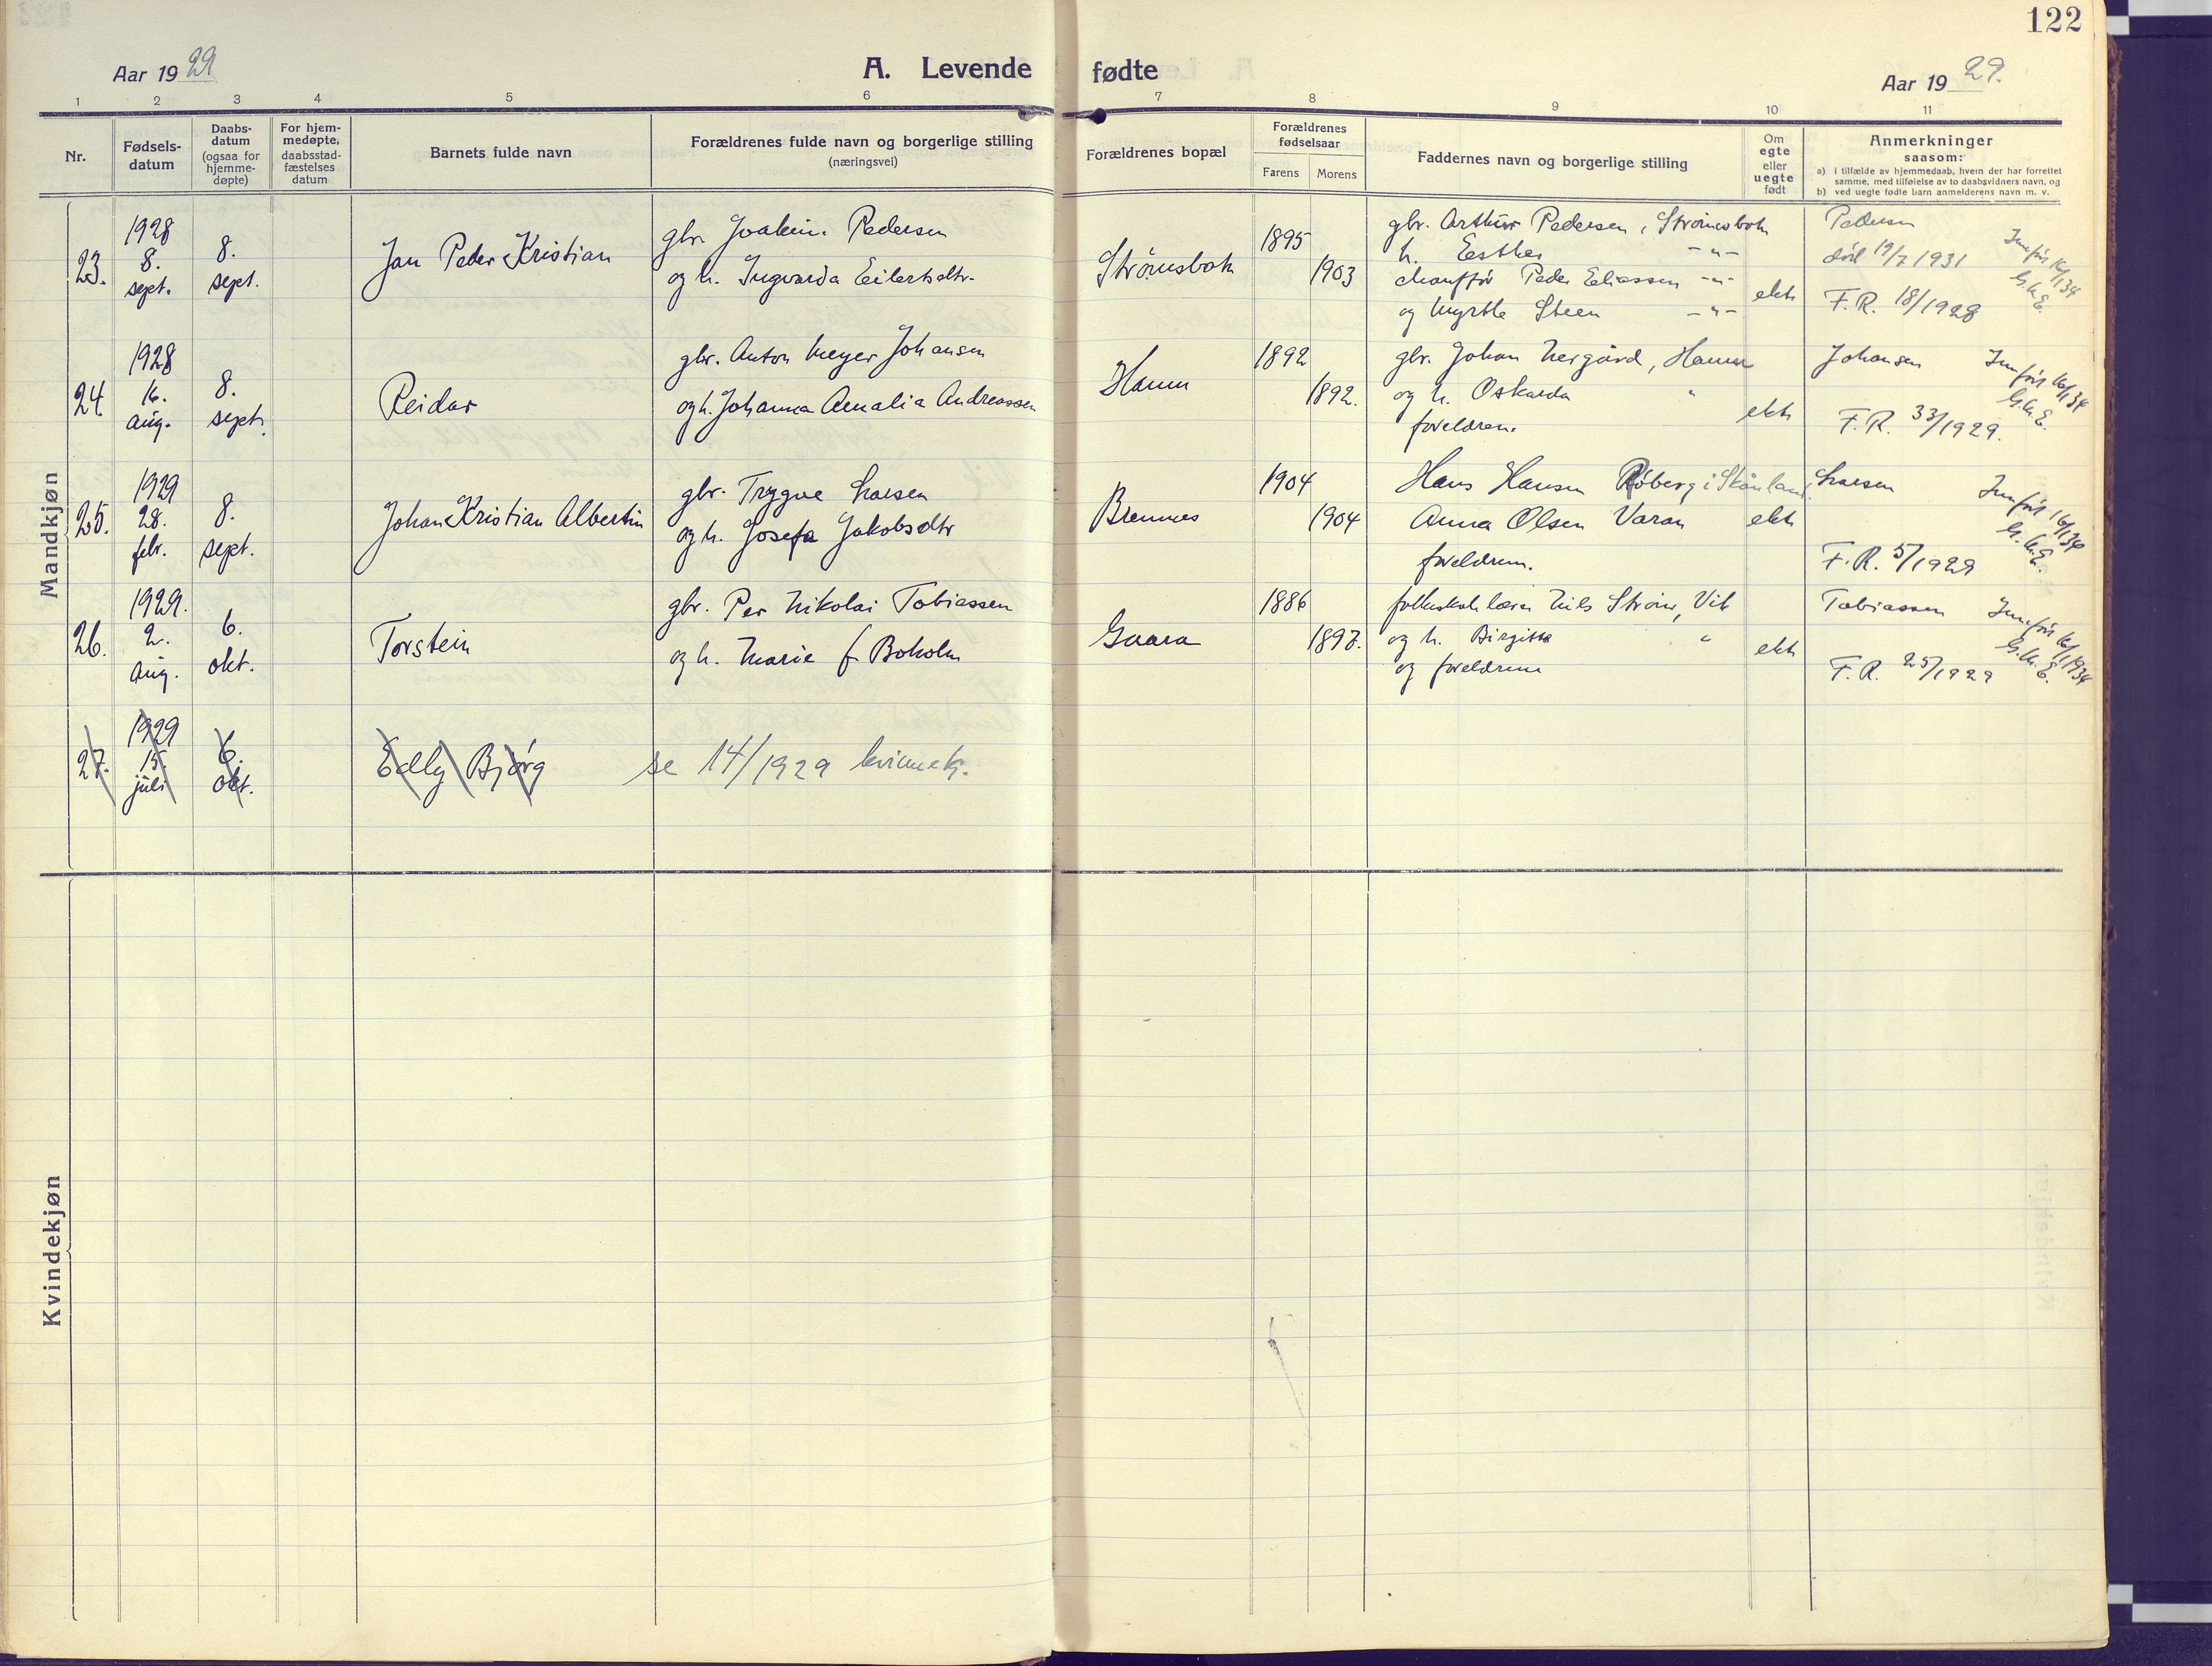 122
Aar 1929
A. Levende fødte
Aar 1929.
1 2 3 4 5 6 7 8 9 10 11
Nr.
Fødselsdatum
Daabsdatum (ogsaa for hjemmedøpte)
For hjemmedøpte, daabsstadfæstelses datum
Barnets fulde navn
Forældrenes fulde navn og borgerlige stilling (næringsvei)
Forældrenes bopæl
Forældrenes fødselsaar
Farens Morens
Faddernes navn og borgerlige stilling
Om egte eller uegte født
Anmerkninger
saasom:
a) i tilfælde av hjemmedaab, hvem der har forrettet samme, med tilføielse av to daabsvidners navn, og
b) ved uegte fødte barn anmelderens navn m. v.
Mandkjøn
23.
1928
8.
sept.
8.
sept.
Jan Peder Kristian
gbr. Joakim Pedersen
og h. Ingvarda Eilertsdtr.
Strømsbotn
1895
1903
gbr. Arthur Pedersen, Strømsbotn
h. Esther -"-
chauffør Peder Eliassen -"-
og Myrtle Steen -"-
ekte
Pedersen
død 19/7 1931
F.R. 18/1928
Innført 16/1 34
G.M.E.
24.
1928
16.
aug.
8.
sept.
Reidar
gbr. Anton Meyer Johansen
og h. Johanna Amalia Andreassen
Hamn
1892
1892.
gbr. Johan Nergård, Hamn
og h. Oskarda "
foreldrene
ekte
Johansen
F.R. 33/1929.
Innført 16/1 34
G.M.E.
25.
1929
28.
febr.
8.
sept.
Johan Kristian Albertin
gbr. Trygve Larsen
og h. Josefa Jakobsdtr
Brennes
1904
1904
Hans Hansen Røberg i Skånland
Anna Olsen Varån
foreldrene.
ekte
Larsen
F.R. 5/1929
Innført 16/1 34
G.M.E.
26.
1929.
2.
aug.
6.
okt.
Torstein
gbr. Per Nikolai Tobiassen
og h. Marie f. Boholm
Gaara
1886
1897.
folkeskolelærer Nils Strøm, Vik
og h. Birgitte "
og foreldrene
ekte
Tobiassen
F.R. 25/1929
Innført 16/1 1934
G.M.E.
27.
1929
15.
juli
6.
okt.
Edly Bjørg
se 14/1929 kvinnek.
Kvindekjøn